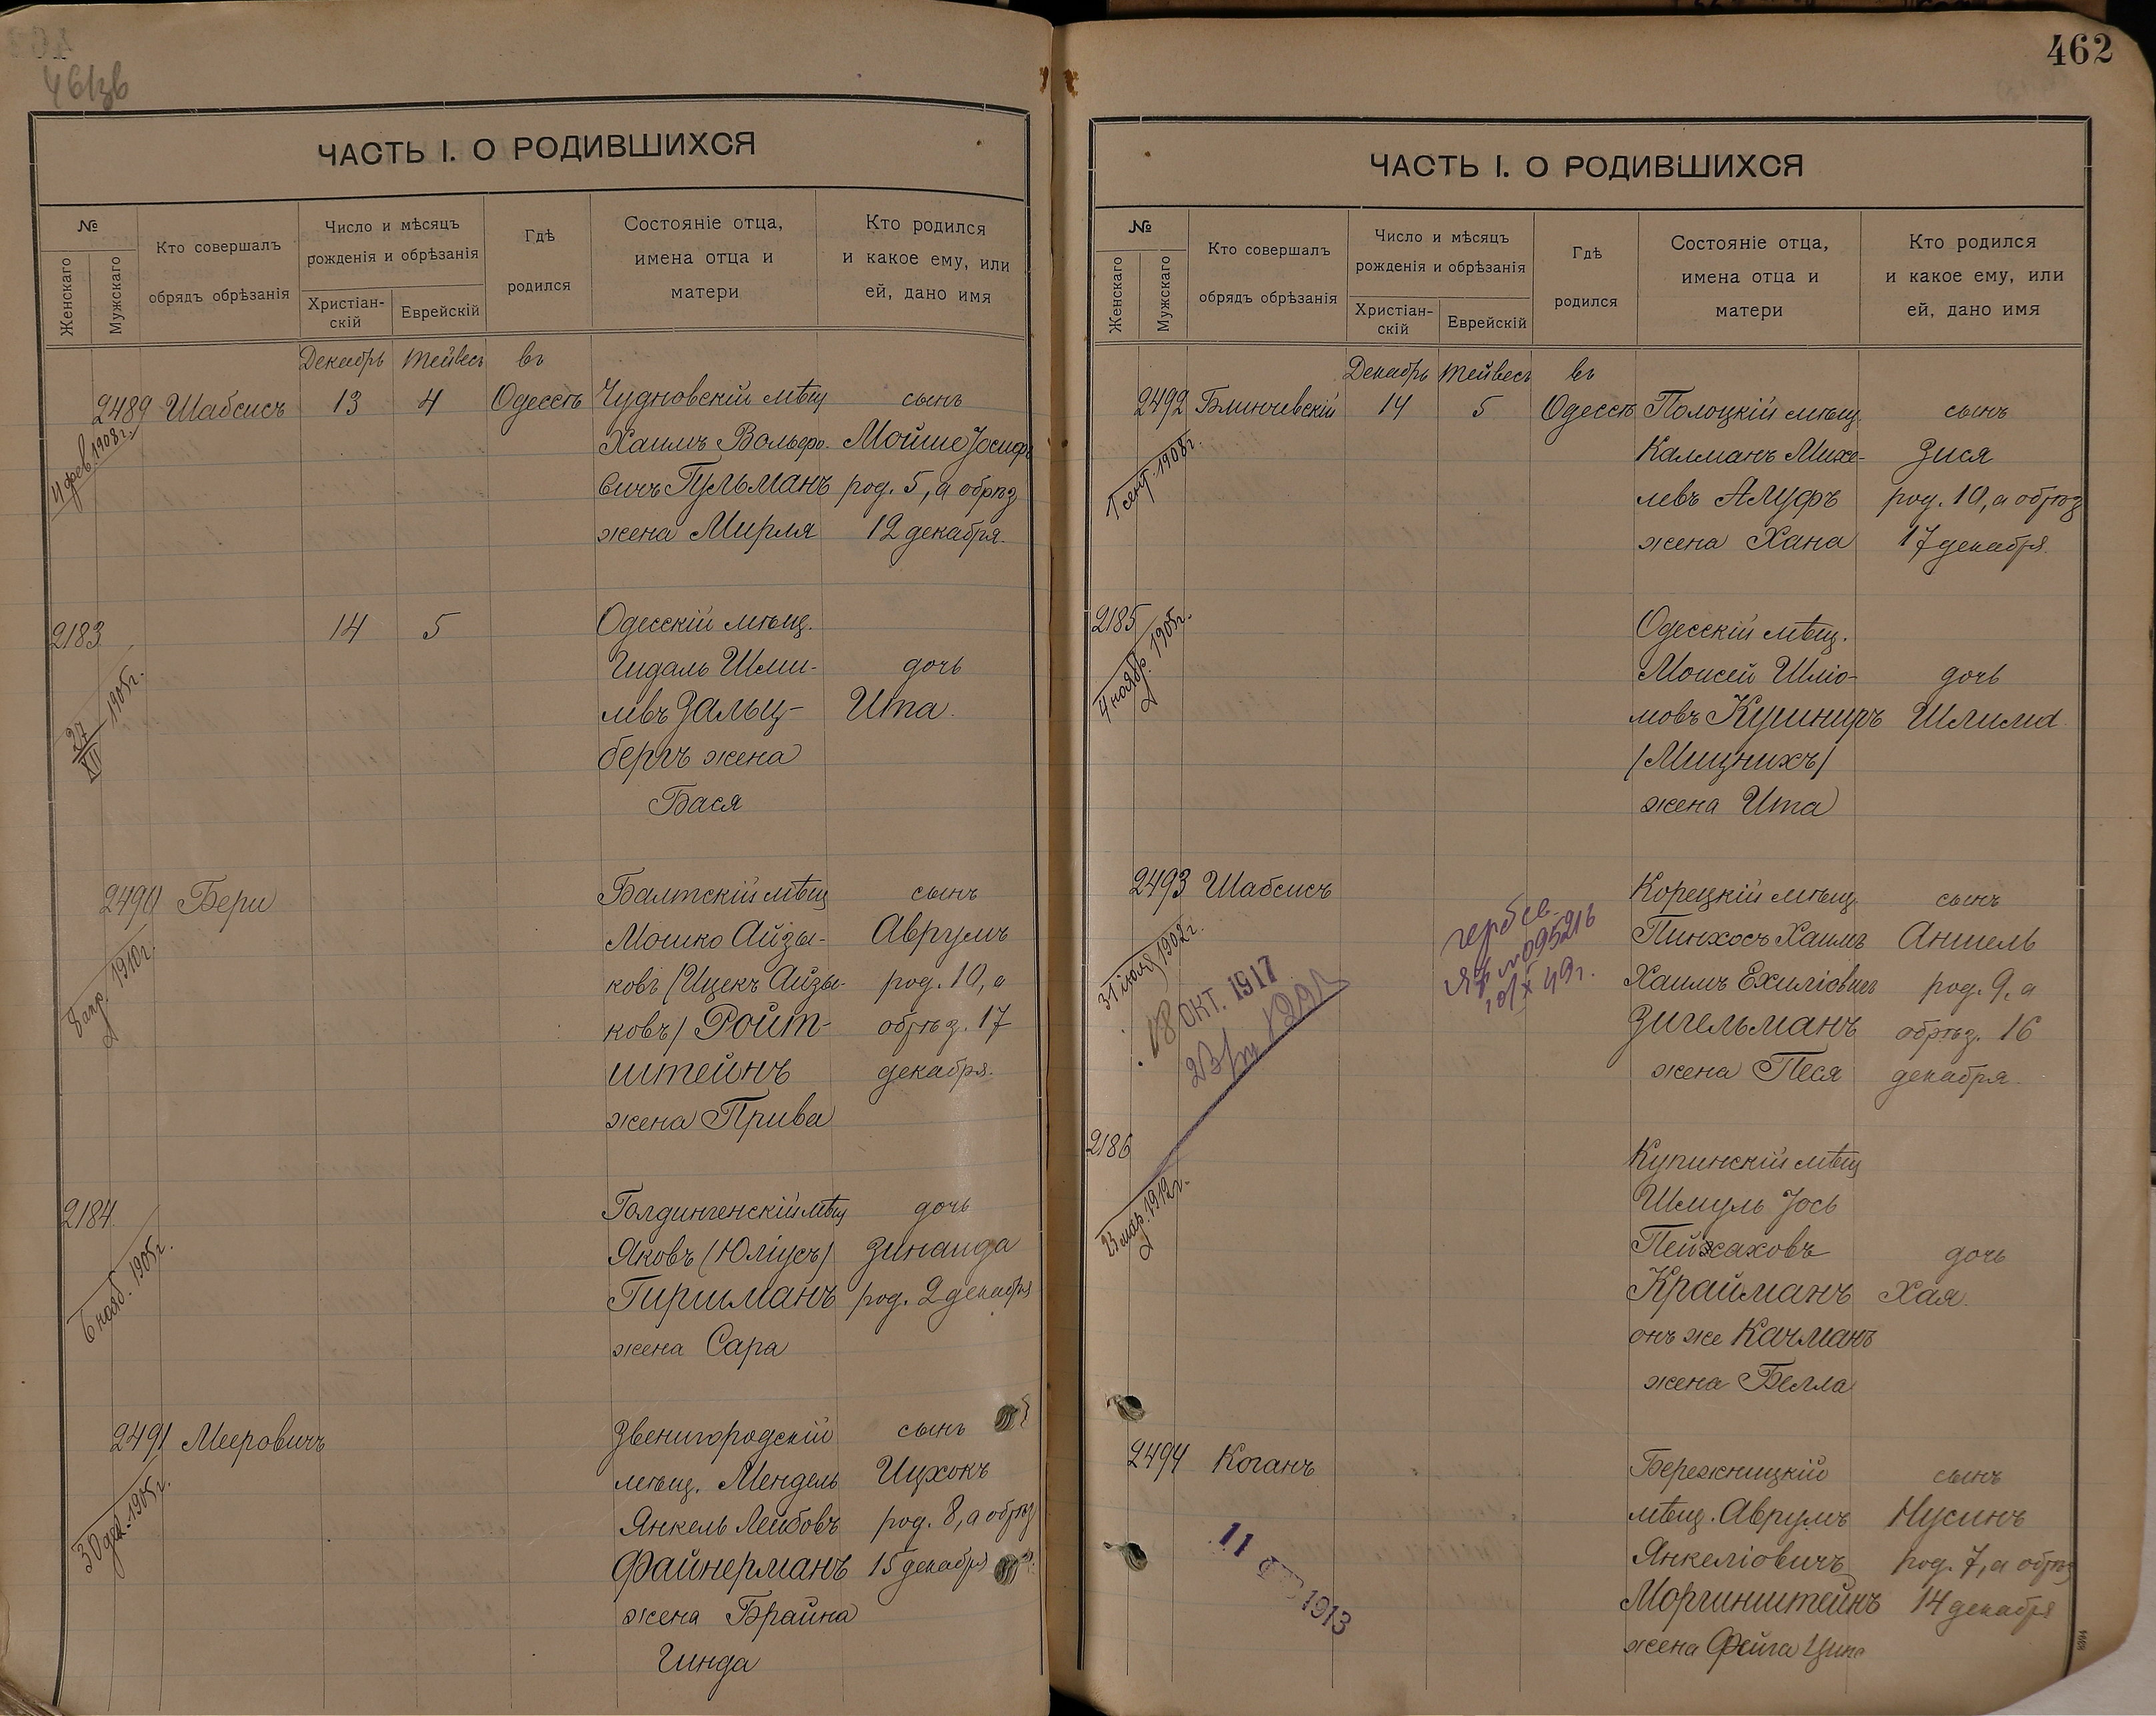 461зв
ЧАСТЬ I. О РОДИВШИХСЯ
№
Женскаго
Мужскаго
Кто совершалъ
обрядъ обрѣзанія
Число и мѣсяцъ
рожденія и обрѣзанія
Христіан-
скій
Еврейскій
Гдѣ
родился
Состояніе отца,
имена отца и
матери
Кто родился
и какое ему, или
ей, дано имя
Декабрь Тейвесъ въ
2489 Шабсисъ 13 4 Одессѣ Чудновскій мѣщ сынъ
4 фев. 1908г.
Хаимъ Вольфо- Мойше Іосифъ
вичъ Гульманъ род. 5, а обрѣз
жена Мирля 12 декабря.
2183 14 5 Одесскій мѣщ.
27/XII 1905г.
Гидаль Шми- дочь
левъ Зальц- Ита.
бергъ жена
Бася
2490 Бери Балтскій мѣщ сынъ
8 апр. 1910г.
Мошко Айзы- Аврумъ
ковъ (Ицекъ Айзы- род. 10, а
ковъ) Ройт- обрѣз. 17
штейнъ декабря.
жена Прива
2184 Голдингенскій мѣщ дочь
6 нояб. 1905г.
Яковъ (Юліусъ) Зинаида
Гиршманъ род. 2 декабря
жена Сара
2491 Мееровичъ Звенигородскій сынъ
30 дек. 1905г.
мѣщ. Мендель Ицхокъ
Янкель Лейбовъ род. 8, а обрѣз
Файнерманъ 15 декабря
жена Брайна
Гинда
462
ЧАСТЬ I. О РОДИВШИХСЯ
№
Женскаго
Мужскаго
Кто совершалъ
обрядъ обрѣзанія
Число и мѣсяцъ
рожденія и обрѣзанія
Христіан-
скій
Еврейскій
Гдѣ
родился
Состояніе отца,
имена отца и
матери
Кто родился
и какое ему, или
ей, дано имя
Декабрь Тейвесъ въ
2492 Блинчевскій 14 5 Одессѣ Полоцкій мѣщ. сынъ
1 сент. 1908г.
Калманъ Михе- Зися
левъ Алуфъ род. 10, а обрѣз
жена Хана 17 декабря.
2185 Одесскій мѣщ.
4 ноябр. 1905г.
Моисей Шліо- дочь
мовъ Кушниръ Шлима
(Мицнихъ)
жена Ита
2493 Шабсисъ Корецкій мѣщ. сынъ
31 іюля 1902г.
Пинхосъ Хаимъ Аншель
Хаимъ Ехиліовичъ род. 9, а
18 ОКТ. 1917
Зигельманъ обрѣз. 16
жена Песя декабря.
2186 Купинскій мѣщ
23 мар. 1912г.
Шмуль Іось
Пейсаховъ дочь
Крайманъ Хая.
онъ же Качманъ
жена Белла
2494 Коганъ Бережницкій сынъ
мѣщ. Аврумъ Нусинъ
Янкеліовичъ род. 7, а обрѣз
11 1913
Моргинштейнъ 14 декабря
жена Фейга Ципа